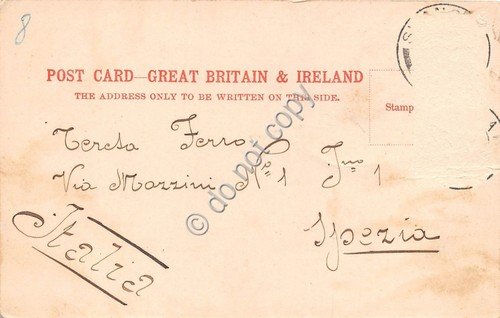 8
POST CARD—GREAT BRITAIN & IRELAND
THE ADDRESS ONLY TO BE WRITTEN ON THIS SIDE.
Stamp
Teresa Ferro
Via Mazzini No 1 Ino 1
Spezia
Italia
© do not copy